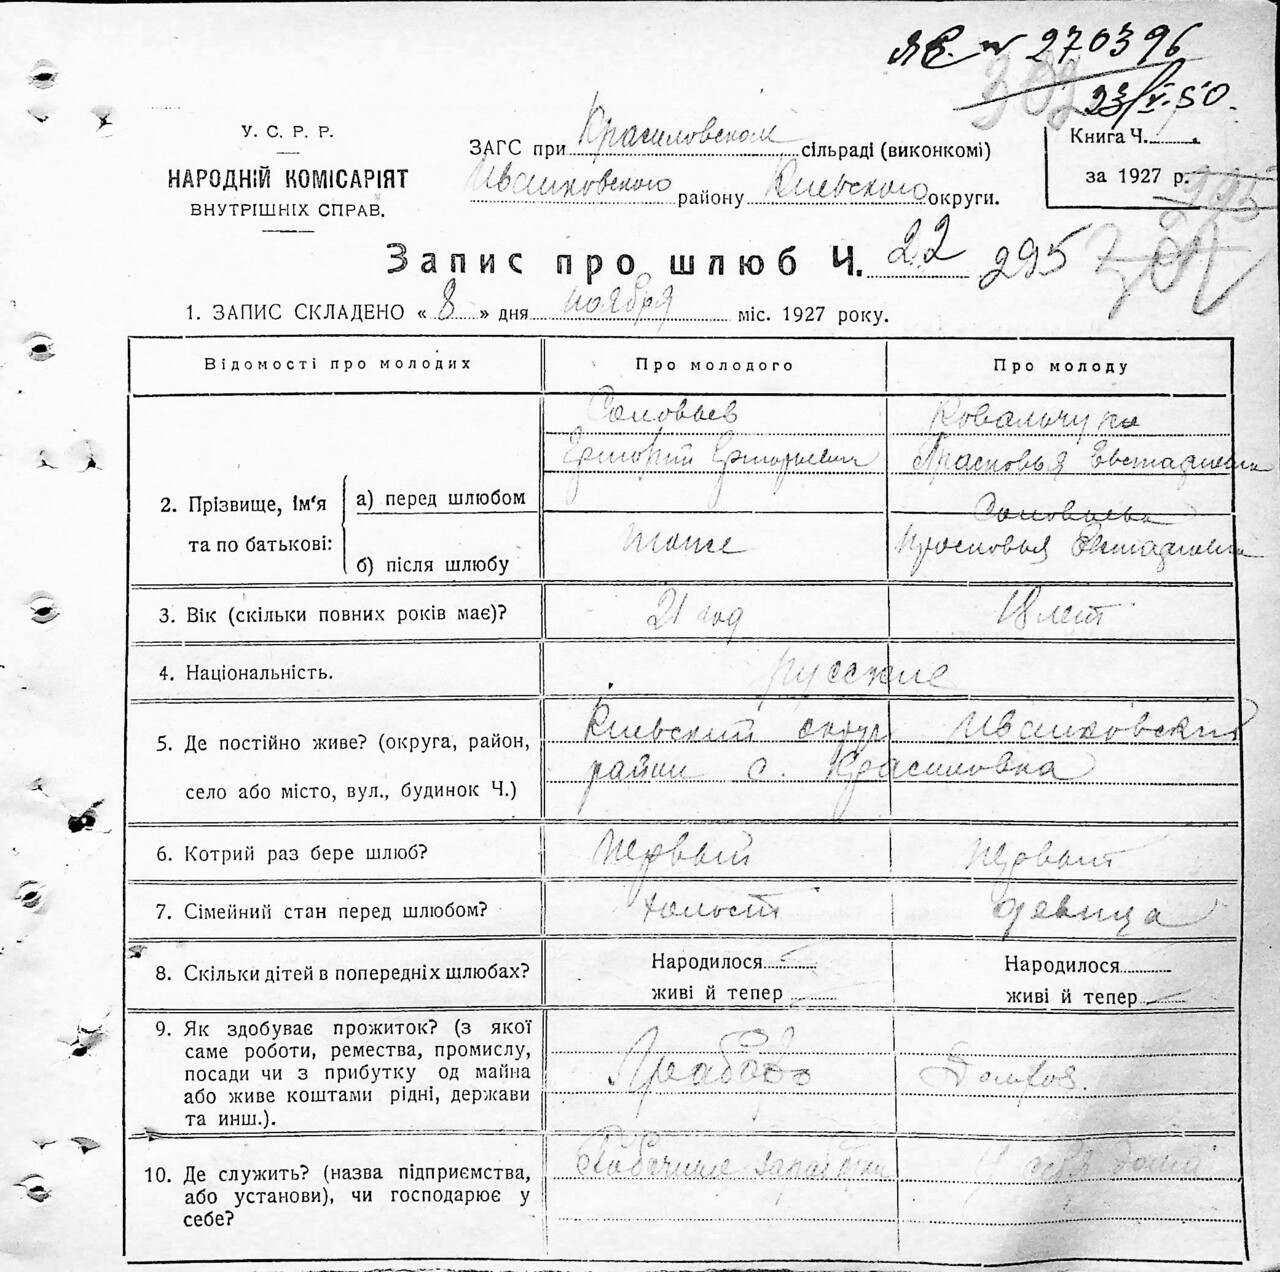 № 270396
23/V-50.
У. С. Р. Р.
НАРОДНІЙ КОМІСАРІЯТ
ВНУТРІШНІХ СПРАВ.
ЗАГС при Красиловском сільраді (виконкомі)
Иванковского району Киевского округи.
Книга Ч.
за 1927 р.
295
Запис про шлюб Ч. 22 295
1. ЗАПИС СКЛАДЕНО « 8 » дня ноября міс. 1927 року.
Відомості про молодих Про молодого Про молоду
2. Прізвище, ім'я та по батькові:
а) перед шлюбом
б) після шлюбу
Соловьев
Григорий Григорьевич
тоже
Ковальчук
Прасковья Евстафиевна
Соловьева
Просковья Евстафиевна
3. Вік (скільки повних років має)? 21 год 18 лет
4. Національність. русские
5. Де постійно живе? (округа, район,
село або місто, вул., будинок Ч.)
Киевский округ Иванковский
район с. Красиловка
6. Котрий раз бере шлюб? первый первый
7. Сімейний стан перед шлюбом? холост девица
8. Скільки дітей в попередніх шлюбах? Народилося Народилося
живі й тепер живі й тепер
9. Як здобуває прожиток? (з якої
саме роботи, ремества, промислу,
посади чи з прибутку од майна
або живе коштами рідні, держави
та инш.).
10. Де служить? (назва підприємства,
або установи), чи господарює у
себе?